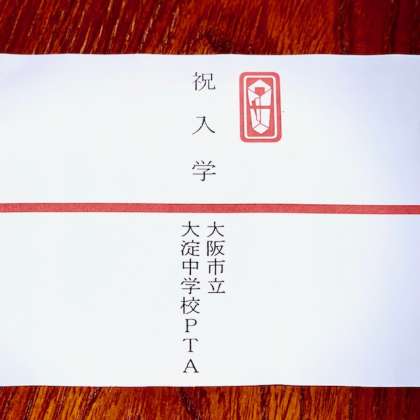 祝入学
大阪市立
大淀中学校PTA